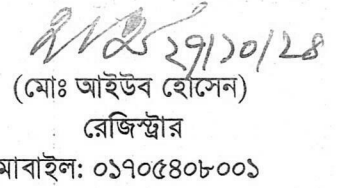 ২৭/১০/২৪
(মোঃ আইউব হোসেন)
রেজিস্ট্রার
মোবাইল: ০১৭০৫৪০৮০০১